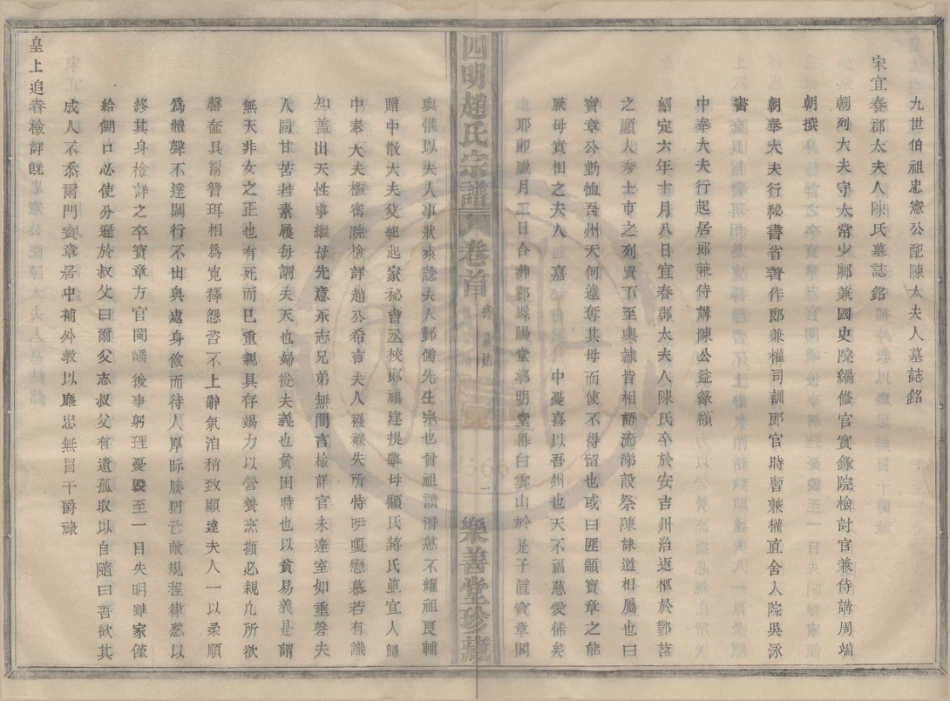 九世伯祖忠憲公配陳太夫人墓誌銘
宋宜春郡太夫人陳氏墓誌銘
朝列大夫守太常少卿兼國史院編修官實錄院檢討官兼侍講周端
朝撰
朝奉大夫行秘書省著作郎兼權司封郎官時暫兼權直舍人院吳泳
書
中奉大夫行起居郎兼侍講陳公益篆額
紹定六年十月八日宜春郡太夫人陳氏卒於安吉州治返柩於鄞蓍
之顯人李士市之列賈下至輿隸皆相語流涕設祭陳誄道相屬也曰
寶章公勤恤吾州天何遽奪其母而使不得留也或曰匪顓寶章之能
厥母實相之夫人 嘉 中憂喜以吾州也天不福慈愛徛矣
耶即臘月 日合葬鄞縣陽堂鄉明堂 白雲山於是子 寶章閣
與懽以夫人事狀來諗夫人鄞儒先生宗也曾祖讀 不耀祖良輔
贈中散大夫父組起家秘書丞校 福建提舉母顧氏蔣氏並宜人歸
中奉大夫樞密院檢詳趙公希言夫人襁褓失所恃 慕若有識
知蓋出天性事繼母先意承志兄弟無間言檢詳官未達室如垂罄夫
人同甘苦若素履每謂夫天也婦從夫義也貧困時也以貧易義是謂
無天非女之正也有死而已重親具存竭力以營養烹 必親凡所欲
罄奩具鬻簪珥相爲寬釋怨咨不上辭氣洎稍致顯達夫人一以柔順
爲體聲不達閾行不出與處身儉而待人厚 勝 敵規程律 以
終其身檢詳之卒寶章方官閩嶠後事躬理憂 至一目失明雖家僮
給餬口必使分 於叔父曰爾父志叔父有遺孤取以自隨曰吾欲其
成人不忝爾門寶章居中補外教以廉忠無冒干爵祿
皇上追眷檢詳既
四明趙氏宗譜 卷首
一
樂善堂珍藏